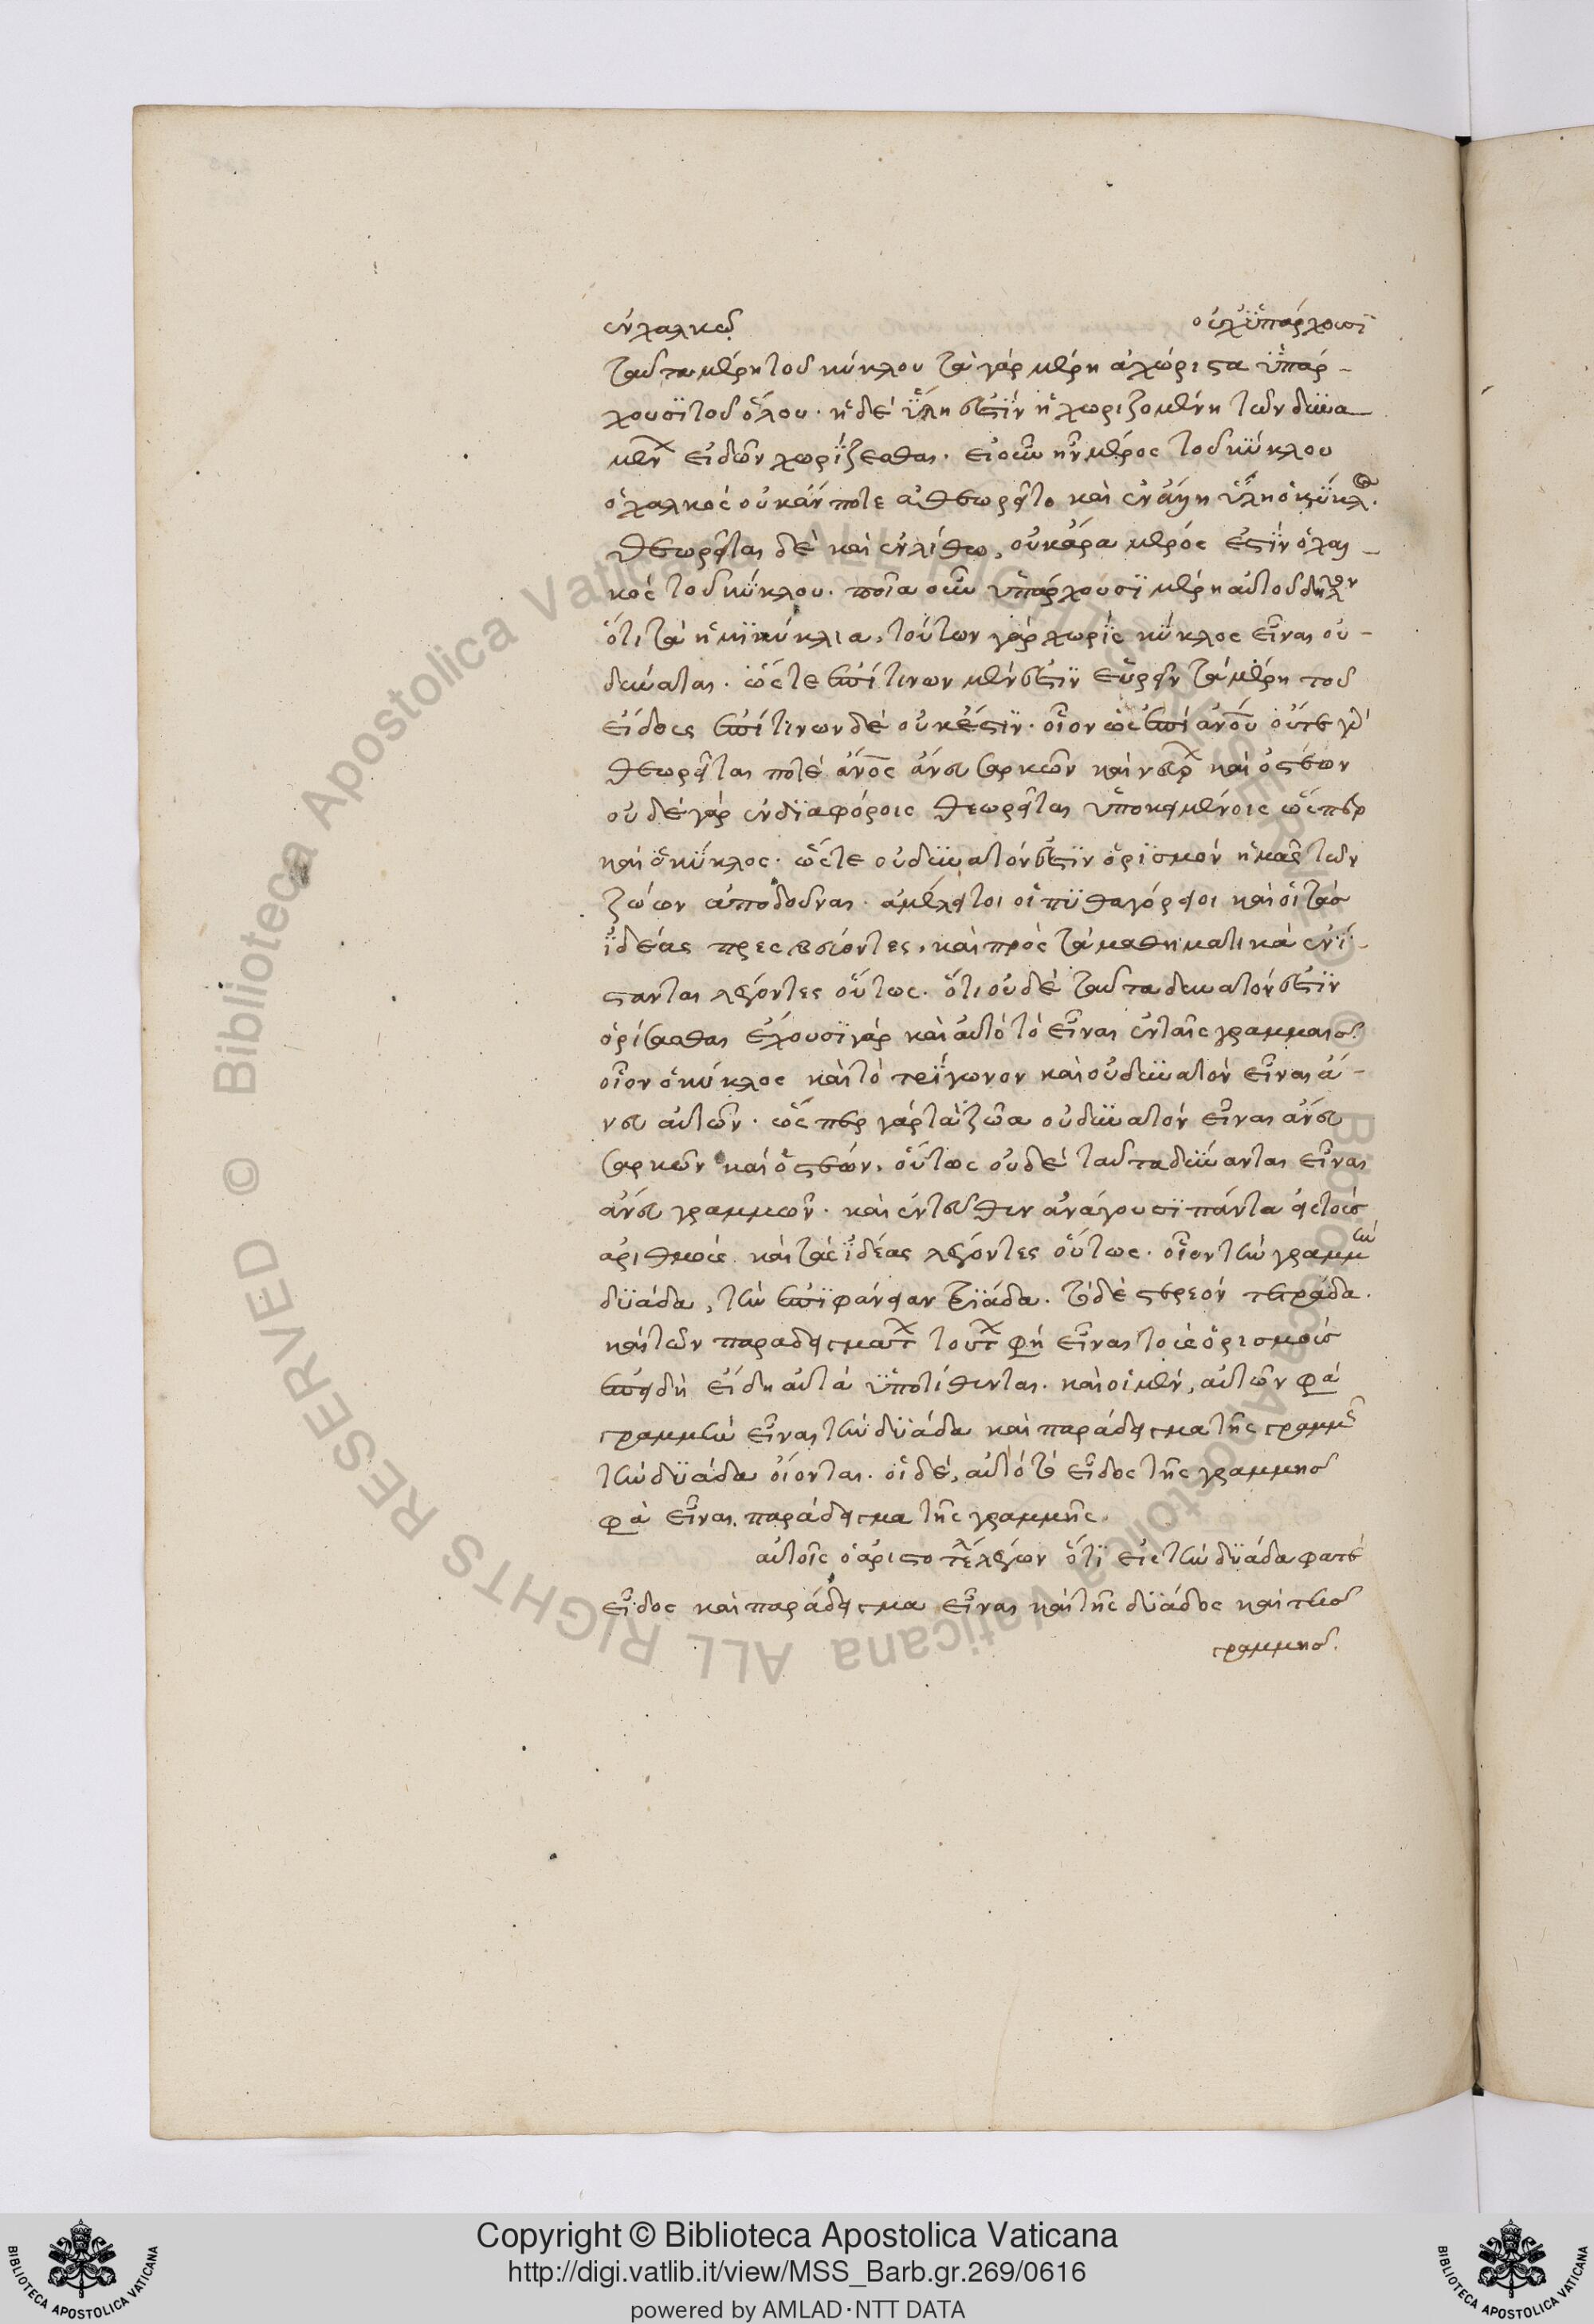 ἐν χαλκῷ οὐχ ὑπάρχουσι
ταῦτα μέρη τοῦ κύκλου τὰ γὰρ μέρη ἀχώριστα ὑπάρ-
χουσι τοῦ ὅλου. ἡ δὲ ὕλη ἐστὶν ἡ χωριζομένη τῶν δυνα-
μένων εἰδῶν χωρίζεσθαι. εἰ οὖν ἦν μέρος τοῦ κύκλου
ὁ χαλκὸς οὐκ ἄν ποτε ἐθεωρεῖτο καὶ ἐν ἄλλη ὕλη ὁ κύκλος.
θεωρεῖται δὲ καὶ ἐν λίθω, οὐκ ἄρα μέρος ἐστὶν ὁ χαλ-
κὸς τοῦ κύκλου. ποῖα οὖν ὑπάρχουσι μέρη αὐτοῦ δῆλον
ὅτι τὰ ἡμικύκλια, τούτων γὰρ χωρὶς κύκλος εἶναι οὐ
δύναται. ὥστε ἐπί τινων μὲν ἐστὶν εὑρεῖν τὰ μέρη τοῦ
εἴδους ἐπί τινων δὲ οὐκ ἔστιν. οἷον ὡς ἐπὶ ἀνου οὔτε γὰρ
θεωρεῖται ποτὲ ἄνος ἄνευ σαρκῶν καὶ νεύρων καὶ ὀστέων
οὐδὲ γὰρ ἐν διαφόροις θεωρεῖται ὑποκειμένοις ὥσπερ
καὶ ὁ κύκλος. ὥστε οὐ δυνατόν ἐστιν ὁρισμὸν ἡμᾶς τῶν
ζώων ἀποδοῦναι. ἀμέλει τοι οἱ πυθαγόρειοι καὶ οἱ τὰς
ἰδέας πρεσβεύοντες, καὶ πρὸς τὰ μαθηματικὰ ἐνί-
στανται λέγοντες οὕτως. ὅτι οὐδὲ ταῦτα δυνατόν ἐστιν
ὁρίσασθαι ἔχουσι γὰρ καὶ αὐτὸ τὸ εἶναι ἐν ταῖς γραμμαῖς
οἷον ὁ κύκλος καὶ τὸ τρίγωνον καὶ οὐ δυνατὸν εἶναι ἄ-
νευ αὐτῶν. ὥσπερ γὰρ τὰ ζῶα οὐ δυνατὸν εἶναι ἄνευ
σαρκῶν καὶ ὀστέων, οὕτως οὐδὲ ταῦτα δύνανται εἶναι
ἄνευ γραμμῶν. καὶ ἐντεῦθεν ἀνάγουσι πάντα εἰς τοὺς
ἀριθμοὺς καὶ τὰς ἰδέας λέγοντες οὕτως. οἷον τὴν γραμμὴν
δυάδα, τὴν ἐπιφάνειαν τριάδα. τὸ δὲ στερεὸν τετράδα.
καὶ τῶν παραδειγμάτων τούτων φησὶ εἶναι τοὺς ὁρισμοὺς
ἐπειδὴ εἴδη αὐτὰ ὑποτίθενται. καὶ οἱ μὲν, αὐτῶν φασὶ
γραμμὴν εἶναι τὴν δυάδα καὶ παράδειγμα τῆς γραμμῆς
τὴν δυάδα οἴονται. οἱ δὲ, αὐτὸ τὸ εἶδος τῆς γραμμῆς
φασὶ εἶναι παράδειγμα τῆς γραμμῆς.
αὐτοῖς ὁ ἀριστοτέλης λέγων ὅτι εἰς τὴν δυάδα φατὲ
εἶδος καὶ παράδειγμα εἶναι καὶ τῆς δυάδος καὶ τῆς
γραμμῆς.
Copyright © Biblioteca Apostolica Vaticana
http://digi.vatlib.it/view/MSS_Barb.gr.269/0616
powered by AMLAD·NTT DATA
BIBLIOTECA APOSTOLICA VATICANA
BIBLIOTECA APOSTOLICA VATICANA
© Biblioteca Apostolica Vaticana ALL RIGHTS RESERVED
© Biblioteca Apostolica Vaticana ALL RIGHTS RESERVED